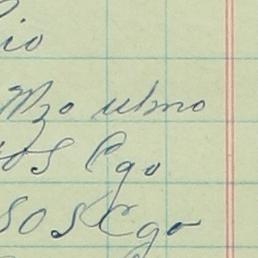 io
Mzo ulmo
os Cgo
sos Cgo